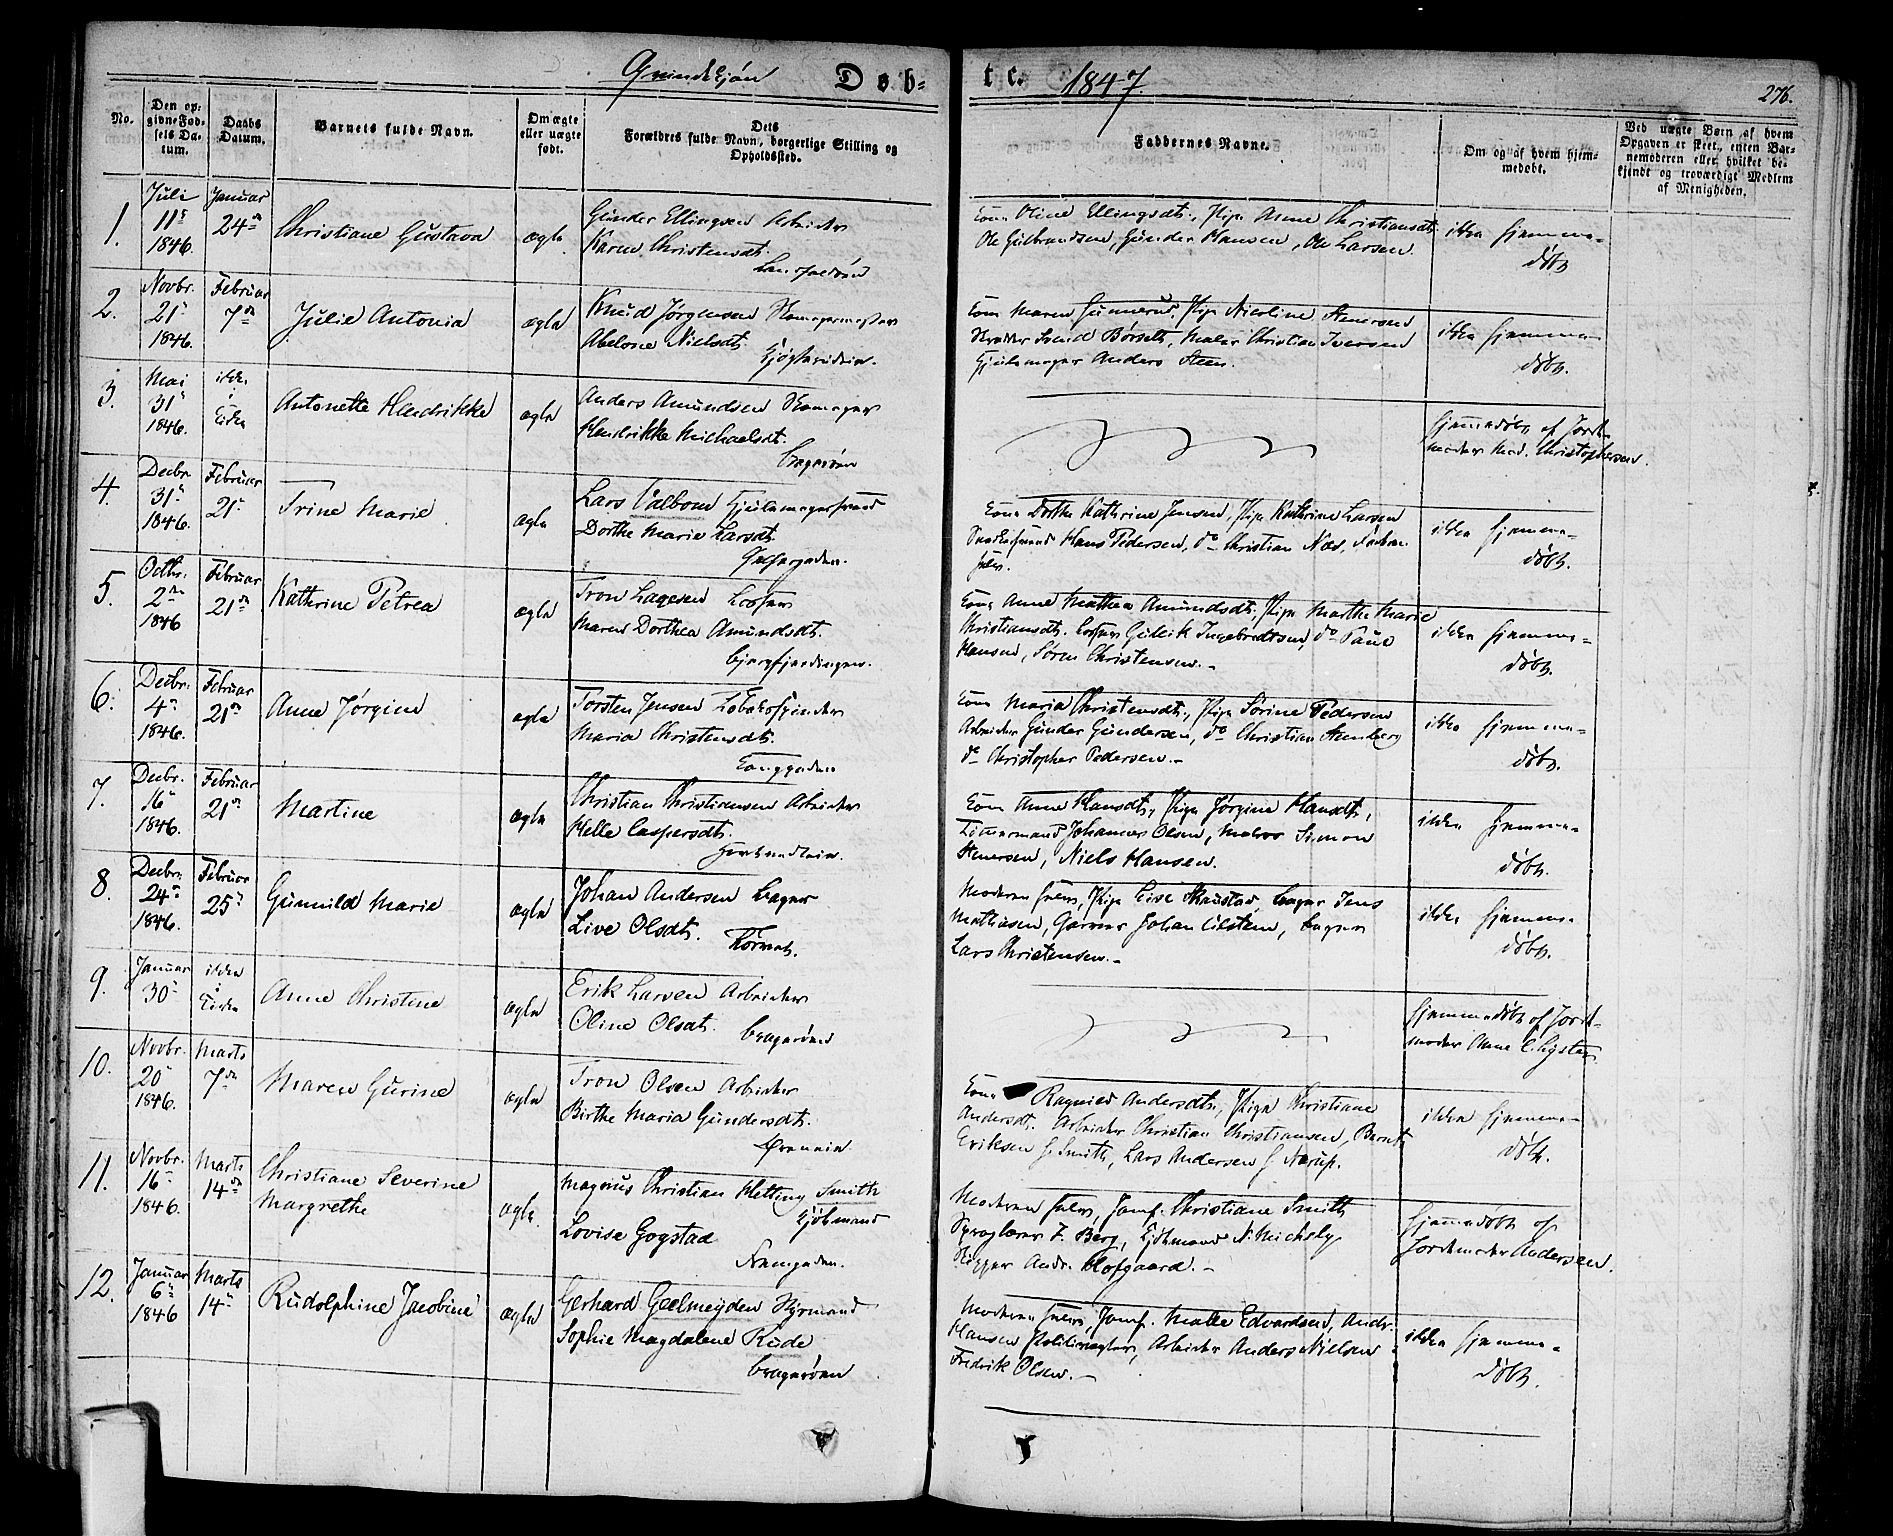 Qvindekjøn Døb-
te. 1847. 276.
No.
Den opgivne Fødsels Datum.
Daabs Datum.
Barnets fulde Navn.
Om ægte eller uægte født.
Dets Forældres fulde Navn, borgerlige Stilling og Opholdssted.
Faddernes Navne.
Om og af hvem hjemmedøbt.
Ved uægte Børn af hvem Opgaven er skeet, enten Barnemoderen eller hvilket bekjendt og troværdigt Medlem af Menigheden.
1. Juli 11te 1846. Januar 24de Christiane Gustava ægte
Gunder Ellingsen Arbeider
Karen Christensdt.
Kone Oline Ellingsdt., Pige Anne Christiansdt.
Ole Gulbrandsen, Gunder Hansen, Ole Larsen.
ikke hjemme-
døbt
2. Novbr. 21 1846. Februar 7de Julie Antonia ægte
Knud Jørgensen Skomagermester
Abelone Nielsdt.
Kone Maren Gunnerud, Pige Nicoline Stenersen
Skrædder Svend Børseth, Maler Christian Iversen
Hjulmager Anders Steen.
ikke hjemme-
døbt.
3. Mai 31 1846. ikke i Kirke Antonette Hendrikke ægte
Anders Amundsen Skomager
Hendrikke Michaelsdt.
Bragerøen
hjemmedøbt af Jord-
moder Mad. Christophersen.
4. Decbr. 31 1846. Februar 21 Trine Marie ægte
Lars Valbom Hjulmagersvend
Dorthe Marie Larsdt.
Kone Dorthe Kathrine Jensen, Pige Kathrine Larsen
Hans Pedersen, do Christian Næs, Faderen
selv.
ikke hjemme-
døbt.
5. Octbr. 2den 1846 Februar 21de Kathrine Petrea ægte
Tron Lagesen Losser
Maren Dorthea Amundsdt.
Bjergfjerdingen.
Kone Anne Mathea Amundsdt., Pige Marthe Marie
Christiansdt. Losser Gulik Ingebretsen, do Paul
Hansen, Søren Christensen.
ikke hjemme-
døbt.
6. Decbr. 4 1846. Februar 21de Anne Jørgine ægte
Torsten Jensen
Maria Christensdt.
Tanggaden
Kone Maria Christensdt., Pige Sørine Pedersen
Arbeider Gunder Gundersen, do Christian Stenberg
do Christopher Pedersen.
ikke hjemme-
døbt.
7. Decbr. 16 1846. Februar 21de Martine ægte
Christian Christiansen Arbeider
Helle Caspersdt.
Kone Anne Hansdt., Pige Jørgine Hansdt.,
Tømmermand Johannes Olsen, Matros Simon
Stenersen, Niels Hansen.
ikke hjemme-
døbt.
8. Decbr. 24 1846. Februar 25 Gunnild Marie ægte
Johan Andersen Bager
Live Olsdt.
Moderen selv, Pige Lise Skaustad, Bager Jens
Mathiesen, Garver Johan Eilstein, Bager
Lars Christensen.
ikke hjemme-
døbt.
9. Januar 30 ikke i Kirke Anne Christine ægte
Erik Larsen Arbeider
Oline Olsdt.
Bragerøen
hjemmedøbt af Jord-
moder Anne C. Lyster
10. Novbr. 20 1846. Marts 7de Maren Gurine ægte
Tron Olsen Arbeider
Birthe Maria Gundersdt.
Kone Ragnild Andersdt., Pige Christiane
Andersdt. Arbeider Christian Christiansen, Bernt
Eriksen g. Smith, Lars Andersen g. Nærup.
ikke hjemme-
døbt.
11. Novbr. 16 1846. Marts 14de Christiane Severine
Margrethe ægte.
Magnus Christian Hetting Smith
Kjøbmand
Lovise Gogstad
Moderen selv, Jomf. Christiane Smith
Sproglærer F. Berg, Kjøbmand N. Michely
Skipper Andr. Hofgaard.
hjemmedøbt af
Jordemoder Andersen.
12. Januar 6 1846 Marts 14 Rudolphine Jacobine ægte
Gerhard Geelmeyden Styrmand
Sophie Magdalene Rude
Bragerøen
Moderen selv, Jomf. Malle Edvardsen, Andr.
Hansen Politimester, Arbeider Anders Nielsen
Fredrik Olsen.
ikke hjemme-
døbt.